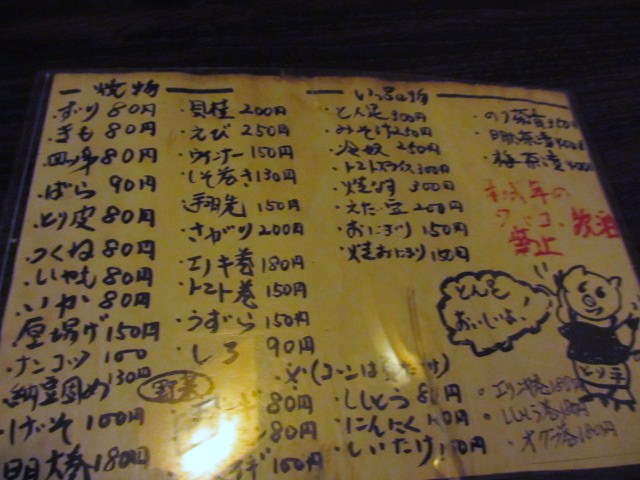 焼物
ずり 80円
きも 80円
四身 80円
ばら 90円
とり皮 80円
つくね 80円
しゃも 80円
いか 80円
厚揚げ 150円
ナンコツ 100
納豆固め 130円
げそ 100円
大巻 180円
貝柱 200円
えび 250円
ウィンナー 150円
しそ巻き 130円
手羽先 150円
さがり 200円
エノキ巻 180円
トマト巻 150円
うずら 150円
しろ 90円
野菜
80円
80円
ギ 100円
一品物
とん足 300円
みそきゅう 250円
冷奴 250円
トマトスライス 300円
焼なす 300円
えだ豆 200円
おにぎり 150円
焼おにぎり 150円
ししとう 80円
にんにく 100円
しいたけ 150円
のり茶漬
茶漬
梅茶漬
未成年の
タバコ、飲酒
禁止
とん足
おいしいよ!
とり手
エリンギ巻 180円
ししとう巻 180円
オクラ巻 180円